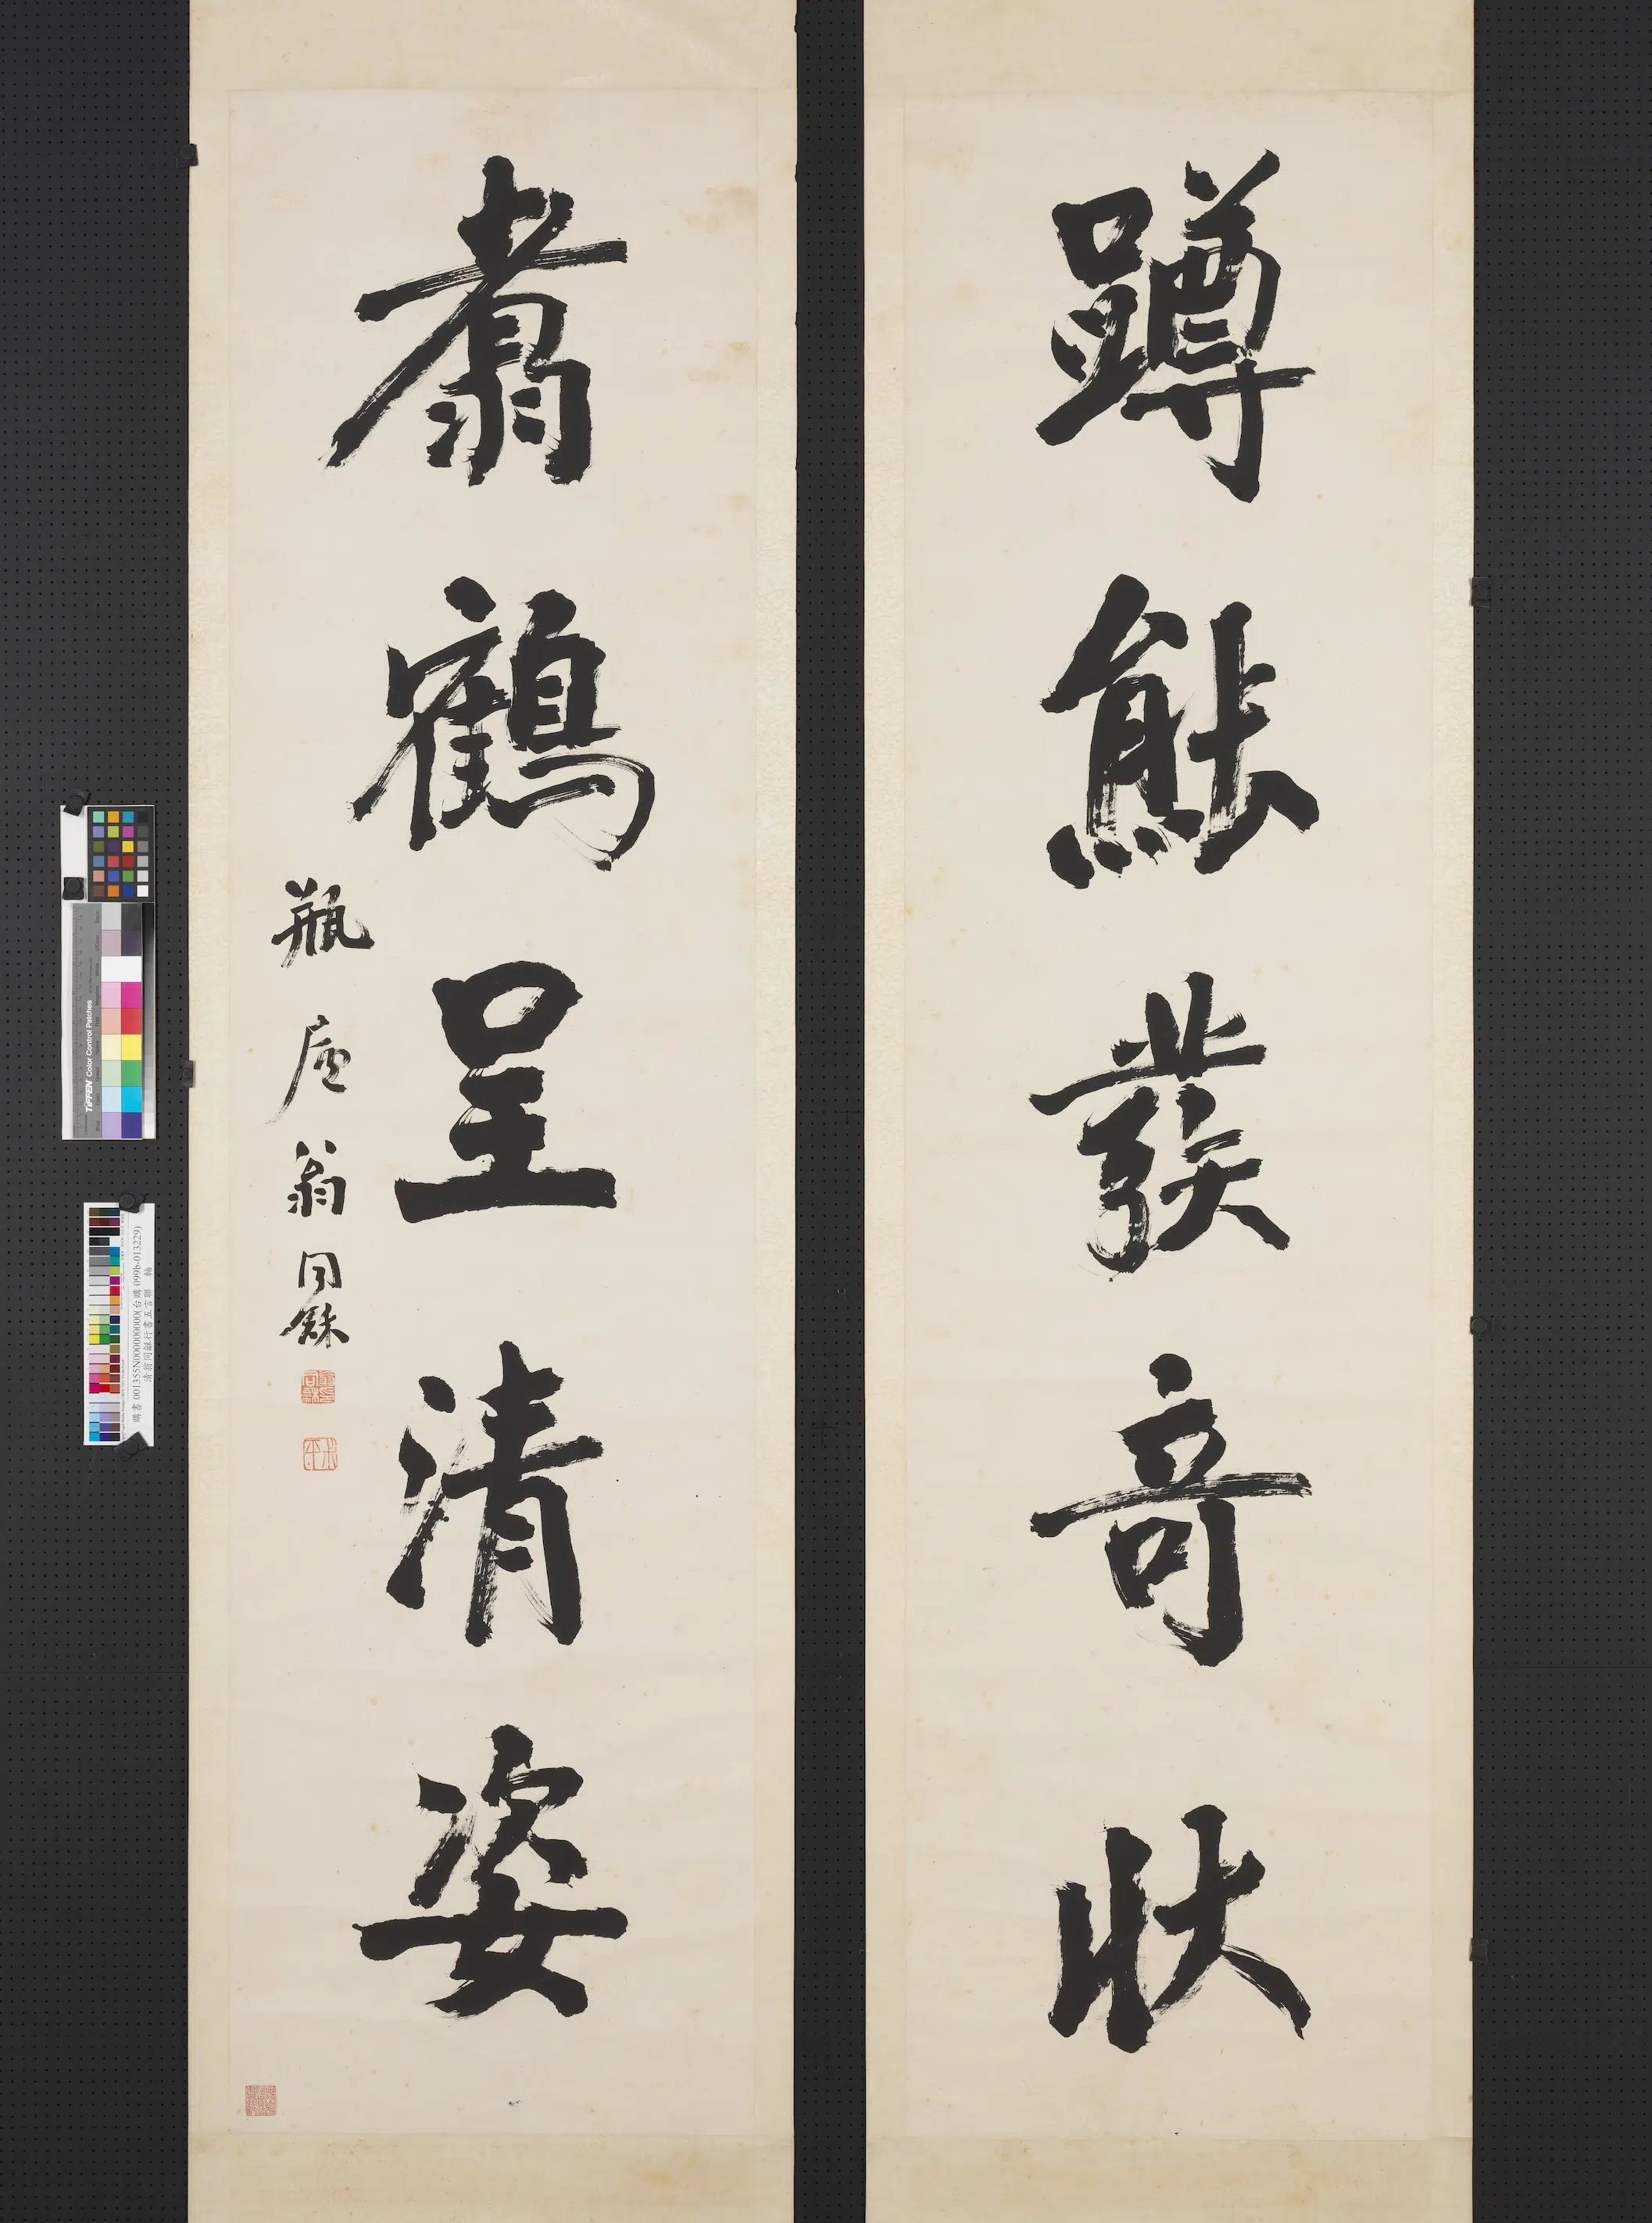 蹲熊發奇狀
翥鶴呈清姿
瓶廬翁同龢
TIFFEN Color Control Patches
購書 001355N000000000(台購 0996-013229)
清翁同龢行書五言聯 軸